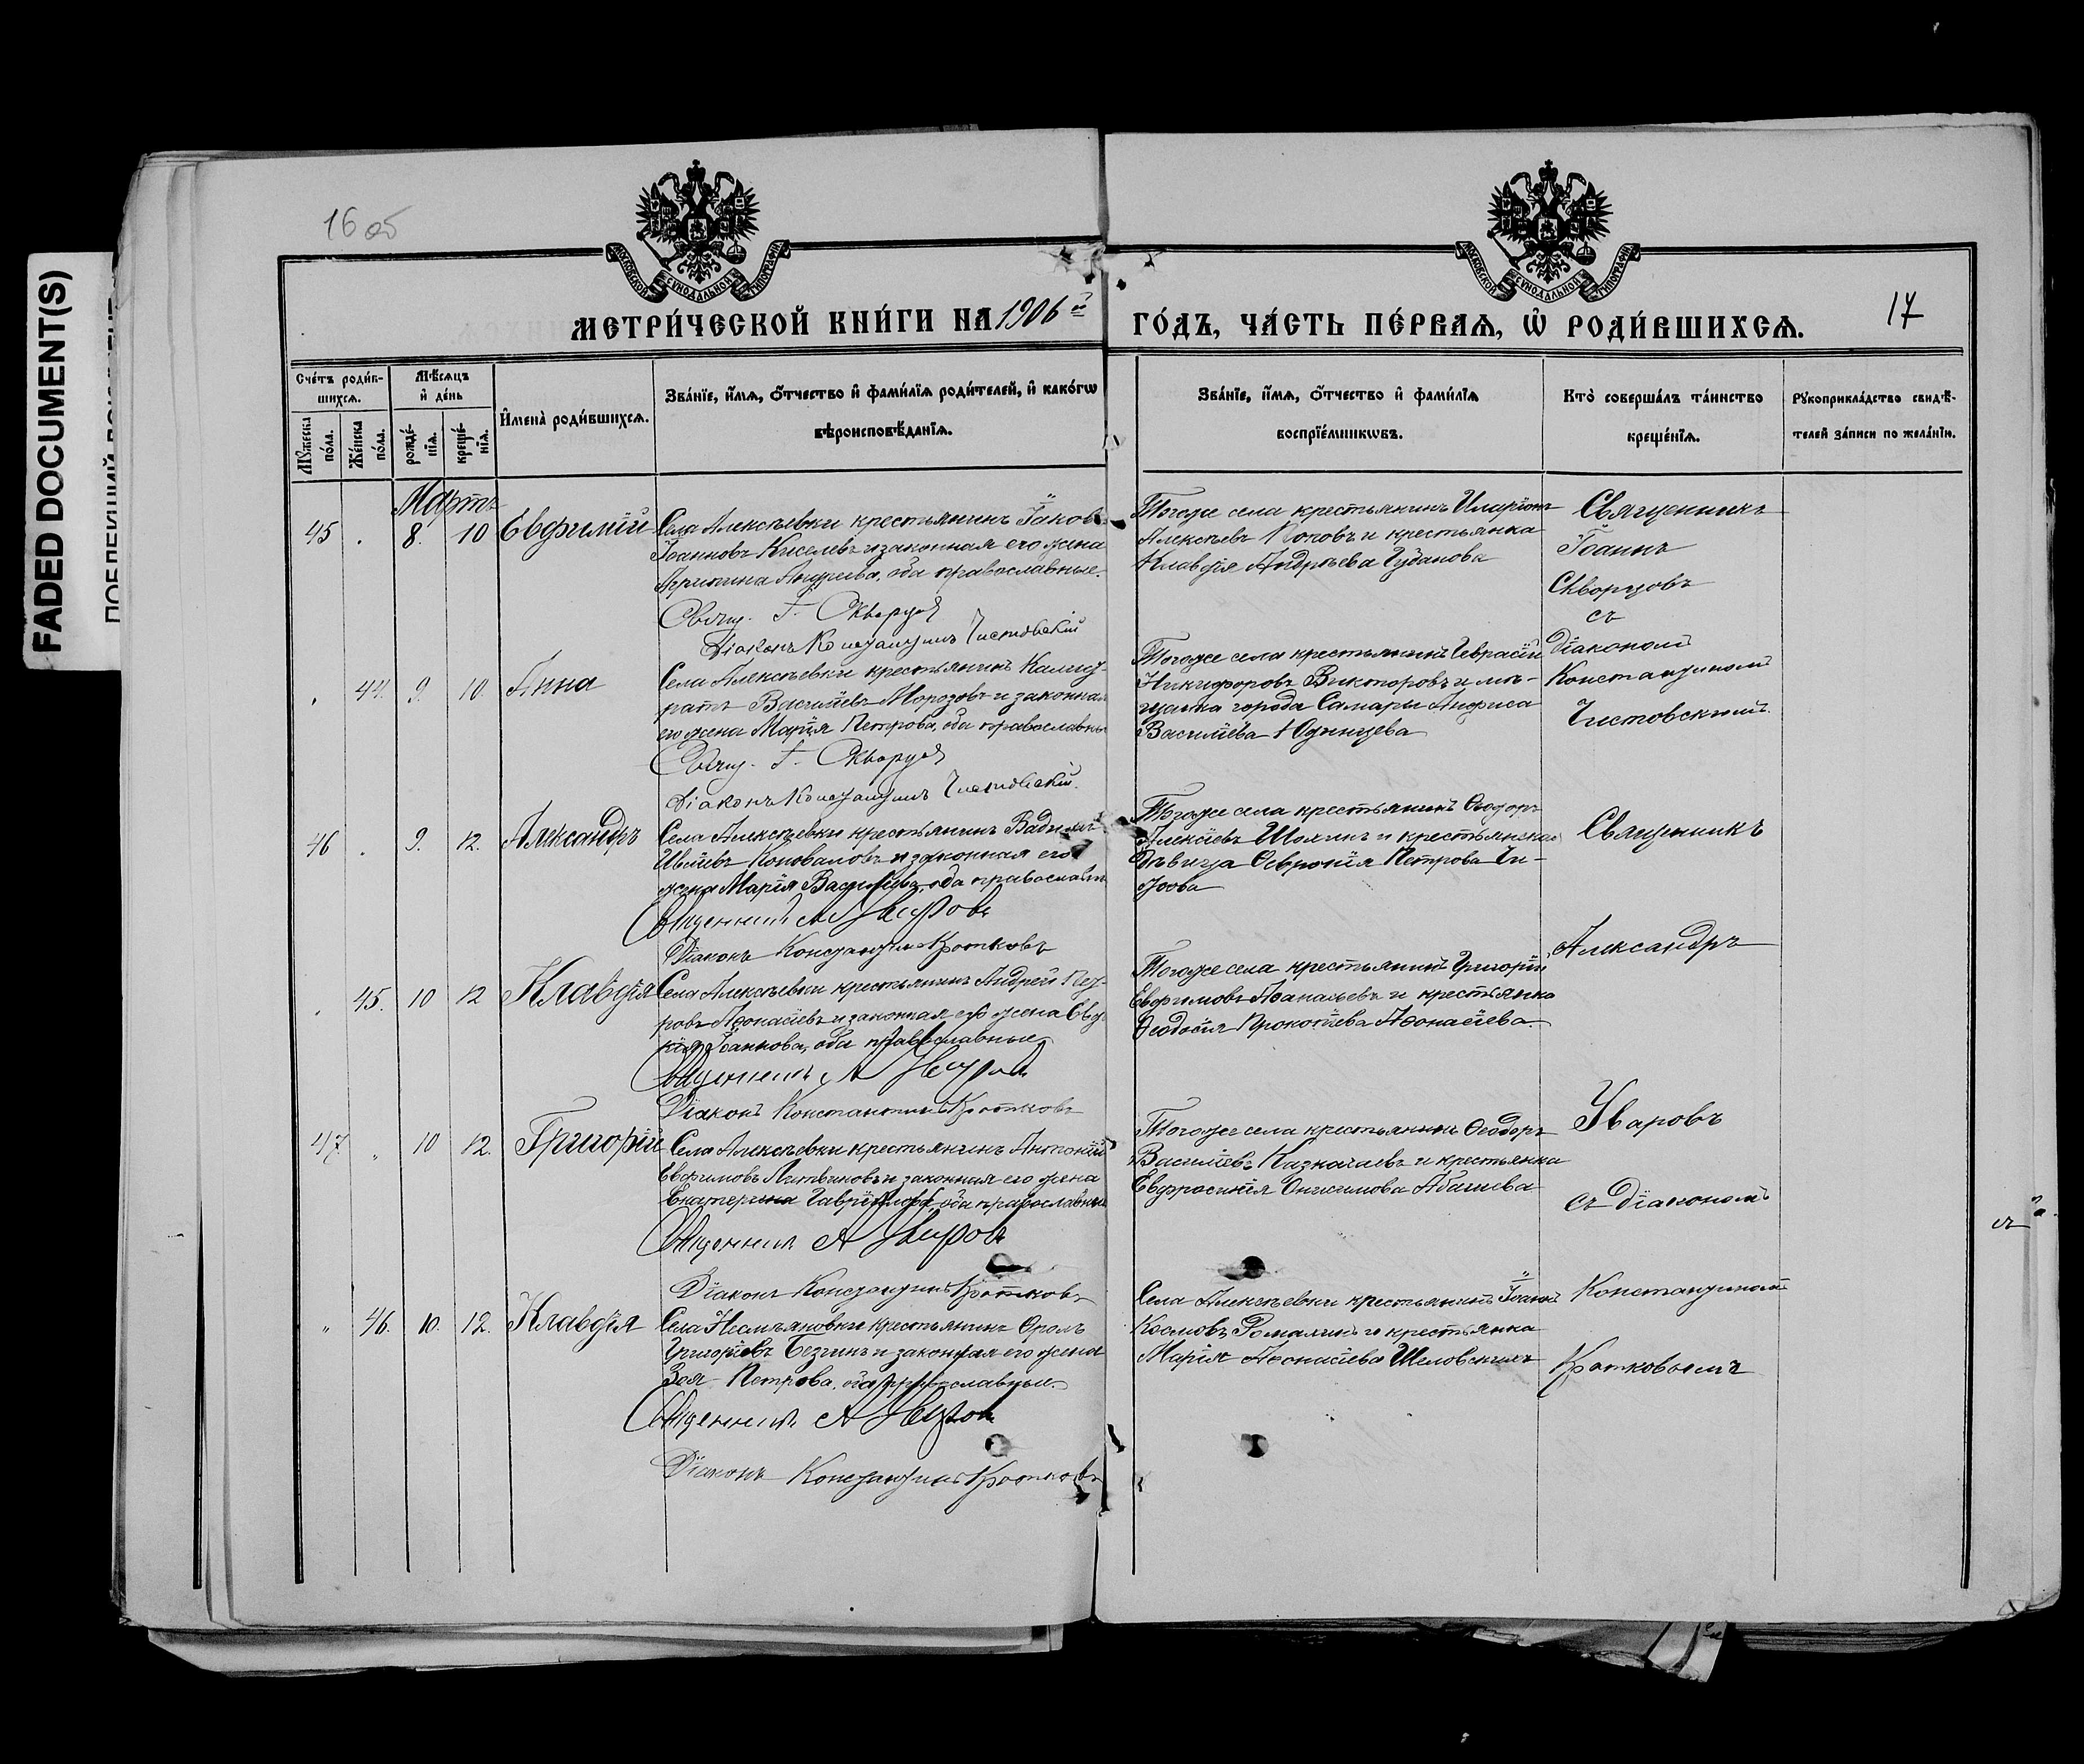 FADED DOCUMENT(S)
16 об
МОСКОВСКОЙ СѴНОДАЛЬНОЙ ТИПОГРАФІИ
МОСКОВСКОЙ СѴНОДАЛЬНОЙ ТИПОГРАФІИ
МЕТРИ́ЧЕСКОЙ КНИ́ГИ НА 1906й
ГО́ДЪ, ЧА́СТЬ ПЕ́РВАѦ, Ѡ҆ РОДИ́ВШИХСѦ.
17
Сче́тъ роди́в-
шихсѧ.
Мꙋ́жеска по́ла.
Же́нска по́ла.
Мѣ́сѧцъ
и҆ де́нь
рожде́-нїѧ.
креще́-нїѧ.
И҆мена̀ роди́вшихсѧ.
Зва́нїе, и҆́мѧ, ѻ҆́тчество и҆ фами́лїѧ роди́телей, и҆ како́гѡ
вѣроисповѣ́данїѧ.
Зва́нїе, и҆́мѧ, ѻ҆́тчество и҆ фами́лїѧ
воспрїе́мникѡвъ.
Кто̀ соверша́лъ та́инство
креще́нїѧ.
Рꙋкоприкла́дство свидѣ́-
телей за́писи по жела́нїю.
Мартъ
45 . 8. 10 Евфимій
Села Алексѣевки крестьянинъ Іаковъ
Іоанновъ Киселевъ и законная его жена
Агрипина Андреева, оба православные.
Свящ. І. Скворцов
Діаконъ Константинъ Чистовский
Тогоже села крестьянинъ Иларіонъ
Алексѣевъ Поповъ и крестьянка
Клавдія Андреева Гуданова
Священникъ
Іоаннъ
Скворцовъ
съ
Діакономъ
Константиномъ
Чистовскимъ.
44. 9. 10. Анна
Села Алексѣевки крестьянинъ
Васильевъ Морозовъ и законная
его жена Марія Петрова, оба православные
Свящ. І. Скворцов
Діаконъ Константинъ Чистовский.
Тогоже села крестьянинъ Гевраcій
Никифоровъ Викторовъ и мѣ-
щанка города Самары Анфиса
Васильева Одинцева
46 . 9. 12. Александръ
Села Алексѣевки крестьянинъ Вадимъ
Ивлiевъ Коноваловъ и законная его
жена Марія Васильева, оба православные
Священникъ А Уваровъ
Діаконъ Константинъ Кротковъ
Тогоже села крестьянинъ Ѳеодоръ
Алексіевъ Шолинъ и крестьянская
дѣвица Февронія Петрова
Священникъ
Александръ
Уваровъ
съ діакономъ
Константиномъ
Кротковымъ
45. 10 12 Клавдія
Села Алексѣевки крестьянинъ Андрей Пет-
ровъ Аѳонасіевъ и законная его жена Евдо-
кія Іоаннова, оба православные
Священникъ А Уваровъ
Діаконъ Константинъ Кротковъ
Тогоже села крестьянинъ Григорій
Евфимовъ Аѳанасьевъ и крестьянка
Ѳеодосія Прокопіева Аѳонасіева.
47 " 10 12. Григорій
Села Алексѣевки крестьянинъ Антоній
Евфимовъ Литвиновъ и законная его жена
Екатерина Гавріилова, оба православные
Священникъ А Уваровъ
Діаконъ Константинъ Кротковъ
Тогоже села крестьянинъ Ѳеодоръ
Василіевъ Казначеевъ и крестьянка
Евфросинія Онисимова Абашева
" 46. 10. 12. Клавдія
Села Несмѣяновки крестьянинъ Фролъ
Григоріевъ Безгинъ и законная его жена
Зоя Петрова, оба православные.
Священникъ А Уваровъ
Діаконъ Константинъ Кротковъ
Села Алексѣевки крестьянинъ Іоаннъ
Космовъ Ромалинъ и крестьянка
Марія Аѳонасіева Шеловскихъ